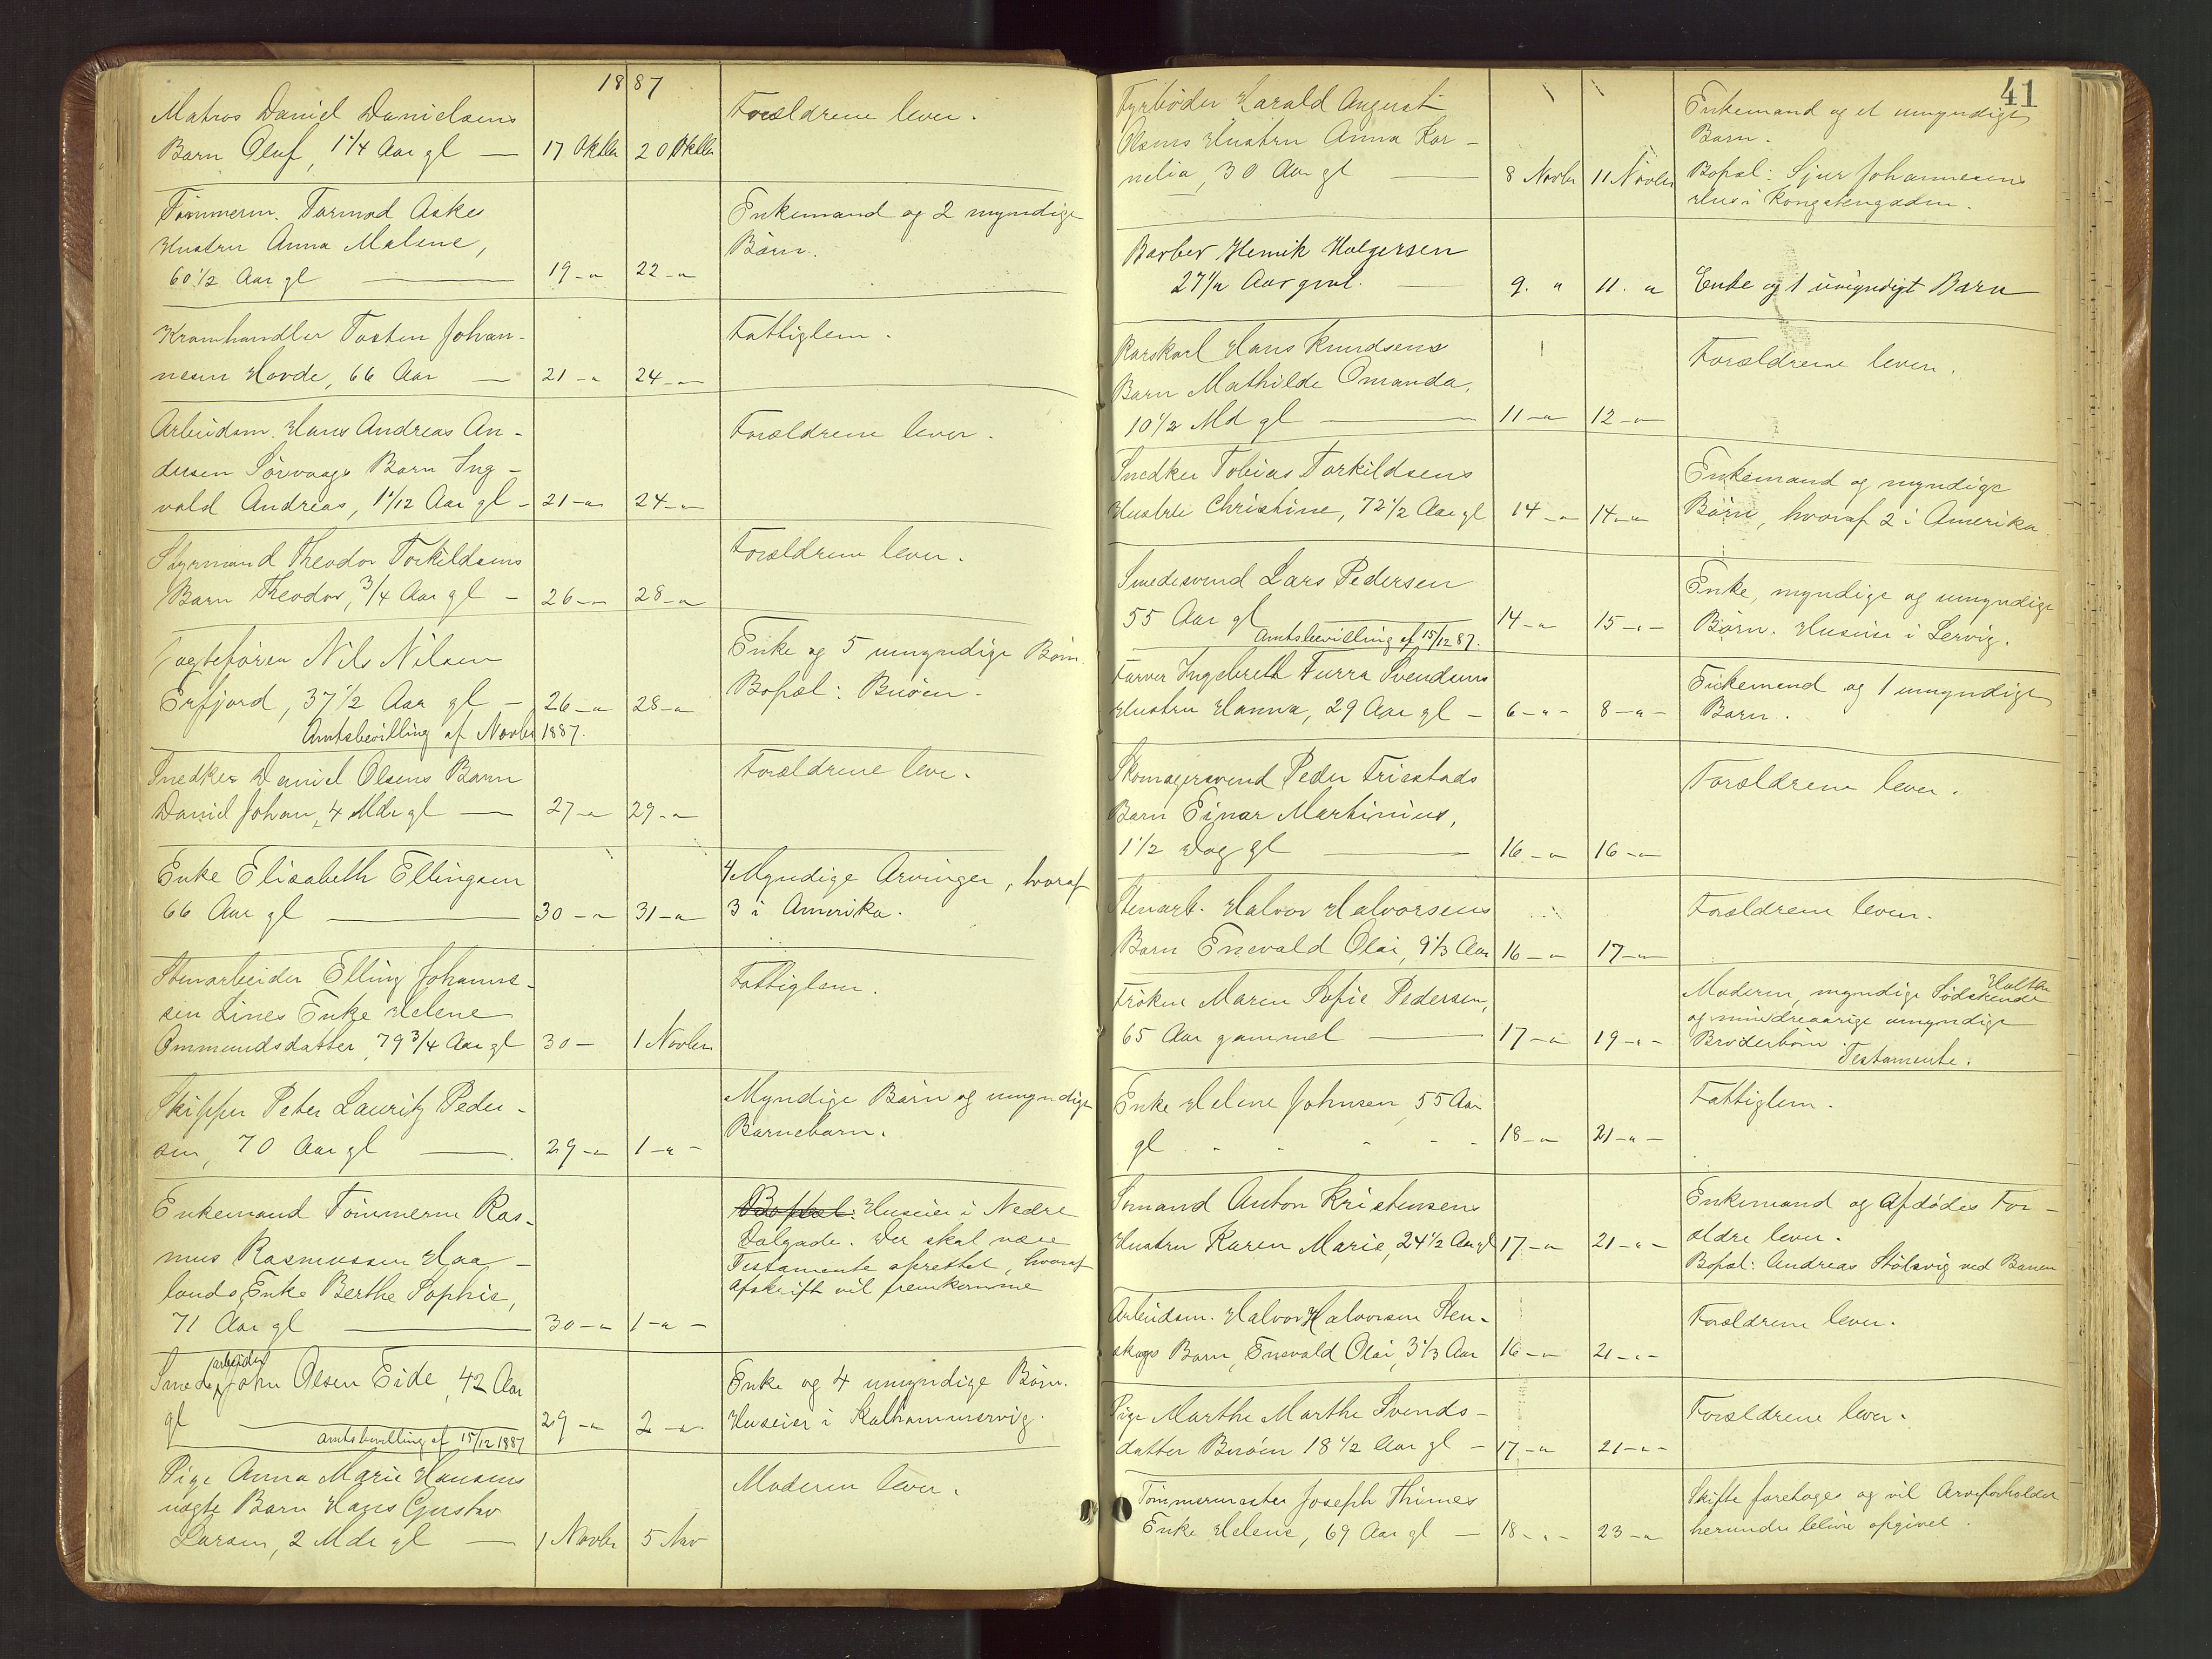 1887
Matros Daniel Danielsens
Barn Oluf, 1 1/4 Aar gl — 17 Oktbr 20 Oktbr Forældrene lever.
Tømmerm. Tormod Askes
Hustru Anna Malene,
60 1/2 Aar gl — 19 -"- 22 -"- Enkemand og 2 myndige
Børn.
Kramhandler Tosten Johan-
nesen Hovde, 66 Aar — 21 -"- 24 -"- Fattiglem.
Arbeidsm. Hans Andreas An-
dersen Sørvaags Barn Ing-
vald Andreas, 1 1/12 Aar gl - 21 -"- 24 -"- Forældrene lever.
Styrmand Theodor Torkildsens
Barn Theodor, 3/4 Aar gl - 26 -"- 28 -"- Forældrene lever.
Jagtefører Nils Nilsen
Erfjord, 37 1/2 Aar gl - 26 -"- 28 -"- Enke og 5 umyndige Børn.
Bopæl: Buøen.
Amtsbevilling af Novbr 1887.
Snedker Daniel Olsens Barn
Daniel Johan, 4 Mdr gl — 27 -"- 29 -"- Forældrene lever.
Enke Elisabeth Ellingsen
66 Aar gl — 30 -"- 31 -"- 4 Myndige Arvinger, hvoraf
3 i Amerika.
Stenarbeider Elling Johannes-
sen Lines Enke Helene
Ommundsdatter, 79 3/4 Aar gl 30 - 1 Novbr Fattiglem.
Skipper Peter Lauritz Peder-
sen, 70 Aar gl — 29 -"- 1 -"- Myndige Børn og umyndigt
Barnebarn.
Enkemand Tømmerm Ras-
mus Rasmussen Haa-
lands Enke Berthe Sophie,
71 Aar gl — 30 -"- 1 -"- Bopæl: Huseier i Nedre
Dalgade. Der skal være
Testamente oprettet, hvoraf
Afskrift vil fremkomme
Smedearbeider John Olsen Eide, 42 Aar
gl — 29 -"- 2 -"- Enke og 4 umyndige Børn.
Huseier i Kalhammervig.
Amtsbevilling af 15/12 1887
Pige Anna Marie Hansens
uægte Barn Hans Gustav
Larsen, 2 Mdr gl — 1 Novbr 5 Nov Moderen lever.
41
Fyrbøder Harald August
Olsens Hustru Anna Kor-
nelia, 30 Aar gl — 8 Novbr 11 Novbr Enkemand og et umyndigt
Barn.
Bopæl: Sjur Johannesens
Hus i Kongstengaden.
Barber Henrik Holgersen
27 1/2 Aar gml. — 9. " 11. " Enke og 1 umyndigt Barn
Karskarl Hans Knudsens
Barn Mathilde Omanda,
10 1/2 Md gl — 11 -"- 12 -"- Forældrene lever.
Snedker Tobias Torkildsens
Hustru Christine, 72 1/2 Aar gl 14 -"- 14 -"- Enkemand og myndige
Børn, hvoraf 2 i Amerika
Smedesvend Lars Pedersen
55 Aar gl 14 -"- 15 -"- Enke, myndige og umyndige
Børn. Huseier i Lervig.
Amtsbevilling af 15/12 87.
Farver Ingebreth Furra Svendsens
Hustru Hanna, 29 Aar gl - 6 -"- 8 -"- Enkemand og 1 umyndigt
Barn.
Skomagersvend Peder Friestads
Barn Einar Martinius,
1 1/2 Dag gl — 16 -"- 16 -"- Forældrene lever.
Stenarb. Halvor Halvorsens
Barn Enevald Olai, 9 1/3 Aar 16 -"- 17 -"- Forældrene lever.
Frøken Maren Sofie Pedersen,
65 Aar gammel — 17 -"- 19 -"- Moderen, myndige Halv-Sødskende
og mindreaarige umyndige
Broderbørn. Testamente.
Enke Helene Johnsen, 55 Aar
gl - - - - 18 -"- 21 -"- Fattiglem.
Sømand Anton Kristensens
Hustru Karen Marie, 24 1/2 Aar gl 17 -"- 21 -"- Enkemand og Afdødes For-
ældre lever.
Bopæl: Andreas Stølsvig ved Banen
Arbeidsm. Halvor Halvorsen Sten-
skogs Barn, Enevald Olai, 3 1/3 Aar 16 -"- 21 -"- Forældrene lever.
Pige Marthe Marthe Svends-
datter Buøen 18 1/2 Aar gl - 17 -"- 21 -"- Forældrene lever.
Tømmermester Joseph Thimes
Enke Helene, 69 Aar gl — 18 -"- 23 -"- Skifte foretages og vil Arveforholdet
herunder blive opgivet.